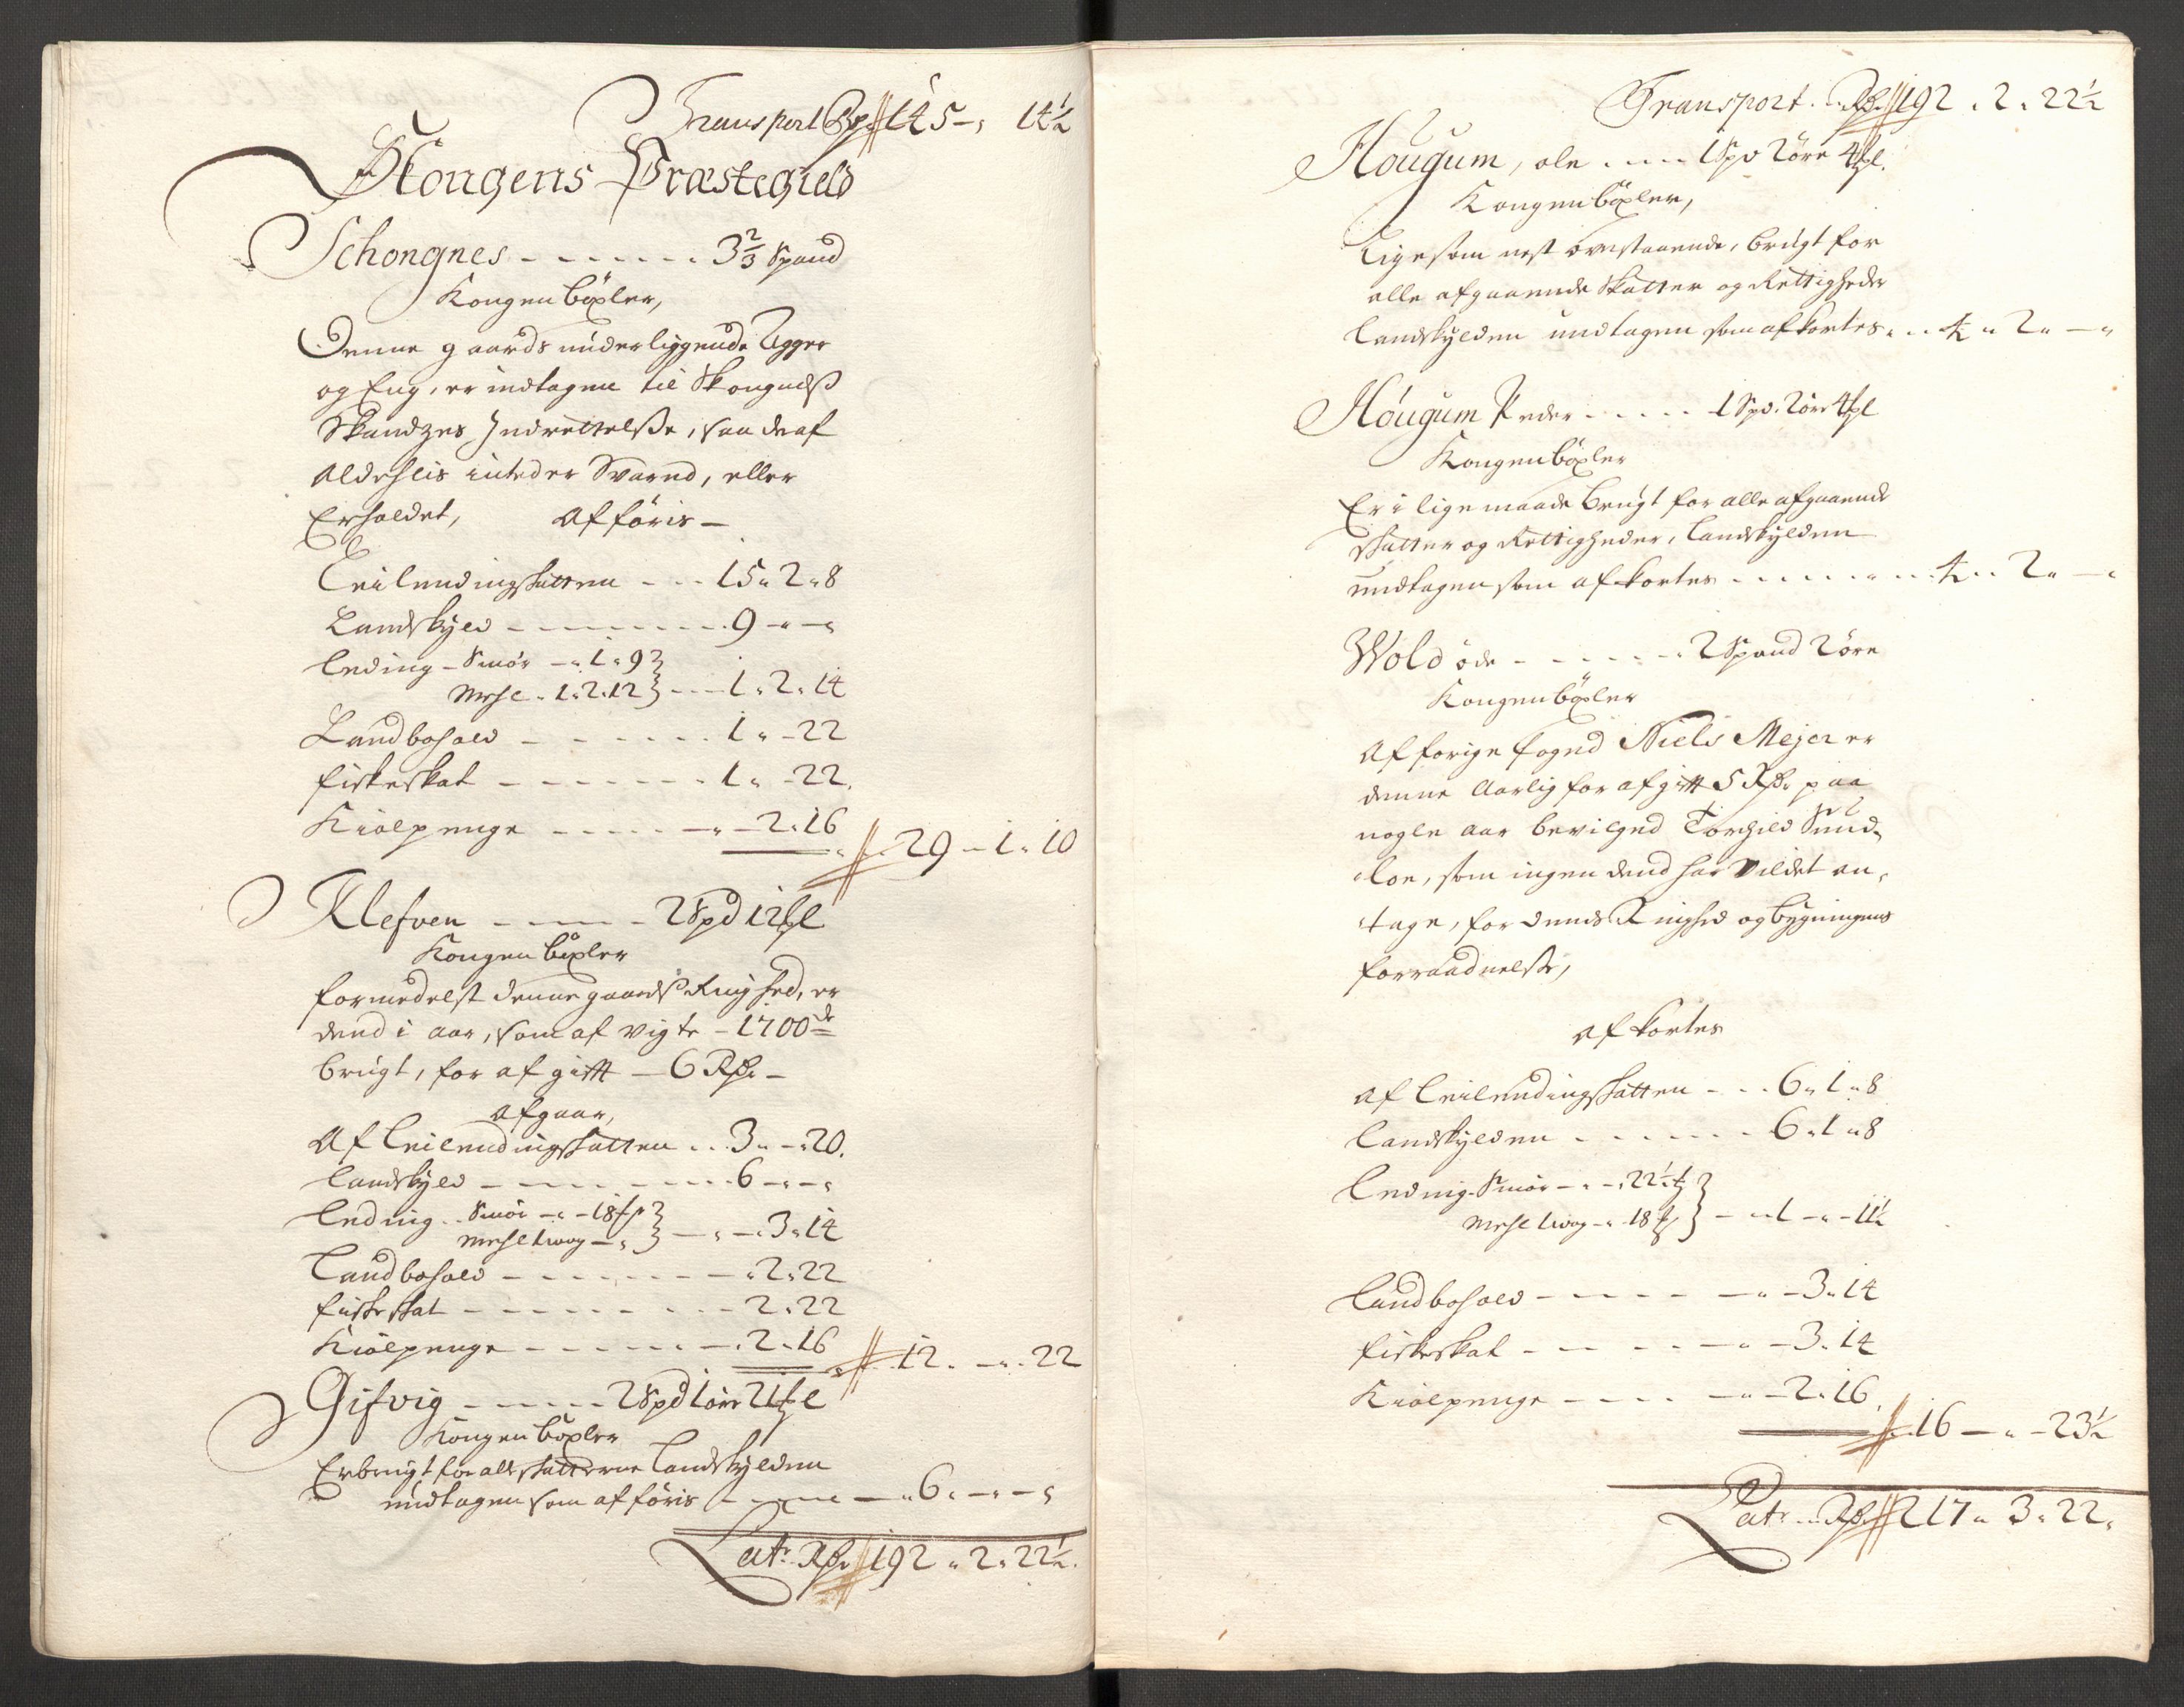 Transport Rdr 145 - „ 14½
Skongens Præstegield
Schongnes - - - - - - 3⅔ Spand
Kongen böxler,
Denne gaards underliggende Agger
og Eng, er indtagen til Skongnæß
Skandzes Indrettelße, saa deraf
aldehlis inted er Svared, eller
Erholdet, Afföris -
Leilendingskatten - - - 15 „ 2 „ 8
Landskyld - - - - - - 9 - „ - „
Leding - Smör - „ 1 „ 9 }
Mehl - 1 „ 2 „ 12 } - - - 1 „ 2 „ 14
Landbohold - - - - - - 1 „ - 22
fiskeskat - - - - - - 1 „ - 22.
Kiölpenge - - - - - „ - 2 „ 16
29 - 1 „ 10
Klefven - - - - 2 Spd 12 ßl
Kongen böxler
formedelst denne gaardß Ringhed, er
dend i aar, som afvigte - 1700de
brugt, for afgifft - 6 Rdr -
Afgaar,
Af Leilendingskatten - - 3 „ - „ 20.
Landskyld - - - - - - 6 - „ - „
Leding - - Smör - „ - 18 ß }
Mehl 1 wog - „ } - „ - „ 3 „ 14
Landbohold - - - - - - „ 2 „ 22
fiskeskat - - - - - - - 2 „ 22
Kiölpenge - - - - - - „ 2 „ 16
12 „ - „ 22
Gifvig - - - - - 2 Spd 1 öre 21 ßl
Kongen böxler
Er brugt for alle skatterne Landskylden
undtagen som afföris - - - - - „ 6 „ - „ - „
Latr Rdr 192 „ 2 „ 22½.
Transport - Rdr 192 „ 2 „ 22½
Hougum, ole - - - - 1 Spd 2 öre 4 ßl.
Kongen böxler,
Ligesom nest ovenstaaende, brugt for
alle afgaaende Skatter og Rettigheder
Landskylden undtagen som afkortes „ - - 4 „ 2 „ - „
Hougum Peder - - - - - 1 Spd. 2 öre 4 ßl
Kongen böxler
Er i lige maade brugt for alle afgaaende
skatter og Rettigheder, Landskylden
undtagen som afkortes - - - - - - - 4 - - 2 „ - „
Wold öde - - - - - - 2 Spand 2 öre
Kongen böxler
Af forige foged Niels Mejer er
denne Aarlig for afgifft 5 Rdr paa
nogle aar bevilged Torchild Sund-
loe, som ingen dend har vildet an-
tage, for dends Ringhed og bygningens
forraadnelse,
Afkortes
Af Leilendingskatten - - - 6 „ 1 „ 8
Landskylden - - - - - - 6 „ 1 „ 8
Leding - Smör - - - „ 22½ ß }
Mehl 1 wog - „ 18 ß } - - „ 1 - „ - 11½
Landbohold - - - - - - „ - 3 „ 14
fiskeskat - - - - - - „ - 3 „ 14
Kiölpenge - - - - - „ - 2 „ 16.
16 - „ - 23½
Latr - Rdr 217 „ 3 „ 22 „